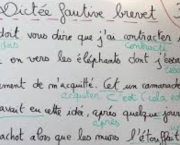 Dictée fautive brevet
doit vous dire que j'ai contracter
contracté
on vers les éléphants dont j'essa
ement de m'acquitté. Cet un camarade
acquitter C'est
avait eu cette idée, après quelque jour
après
achot alors que les mures l'étouffait